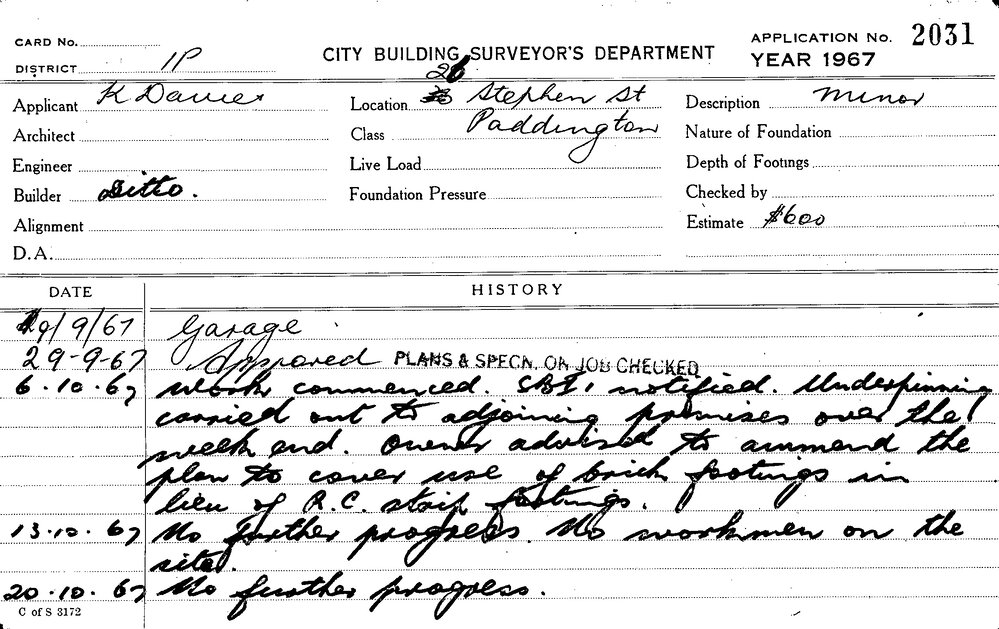 CARD No.
DISTRICT 1P
CITY BUILDING SURVEYOR'S DEPARTMENT
APPLICATION No. 2031
YEAR 1967
Applicant K Davies
Architect
Engineer
Builder Ditto.
Alignment
D.A.
Location 26 Stephen St
Class Paddington
Live Load
Foundation Pressure
Description Minor
Nature of Foundation
Depth of Footings
Checked by
Estimate $600
DATE HISTORY
/9/67 Garage
29-9-67 Approved PLANS & SPECN. ON JOB CHECKED
6.10.67 Work commenced. SBI, notified. Underpinning
carried out to adjoining premises over the
week end. Owner advised to ammend the
plan to cover use of brick footings in
lieu of R.C. strip footings.
13.10.67 No further progress. No workmen on the
site.
20.10.67 No further progress.
C of S 3172